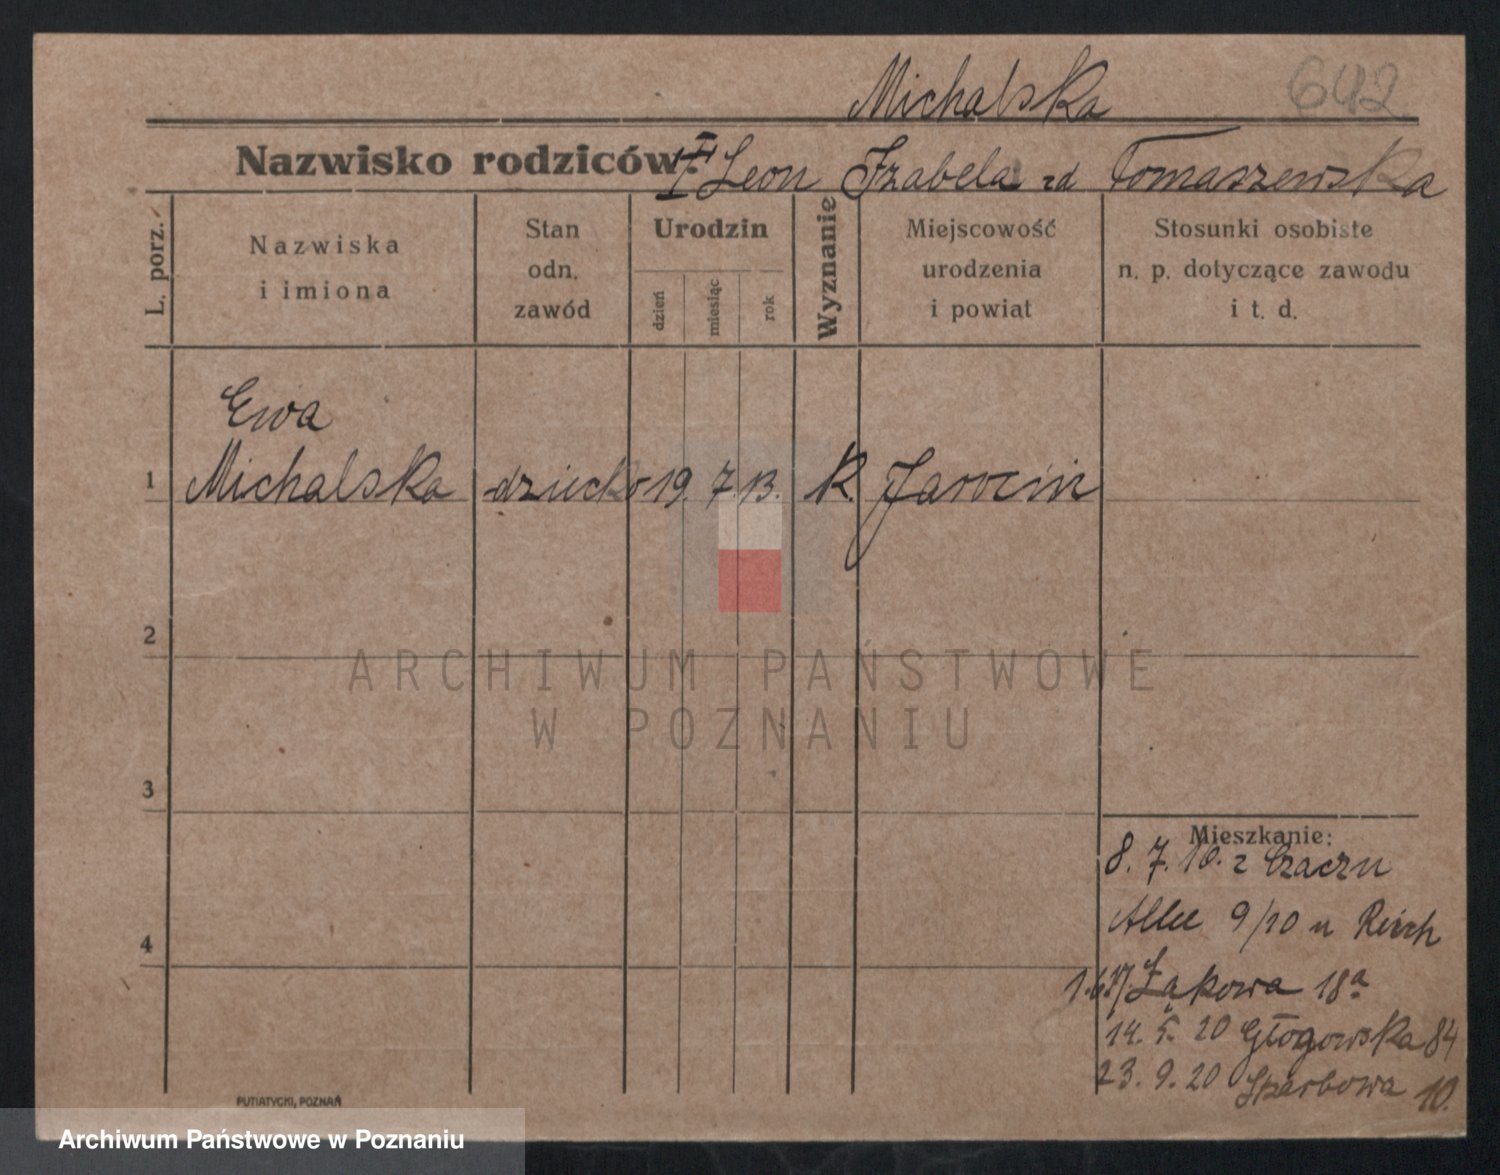 Michalska 642
Nazwisko rodziców: Leon Izabela zd Tomaszewska
L. porz.
Nazwiska
i imiona
Stan
odn.
zawód
Urodzin
dzień
miesiąc
rok
Wyznanie
Miejscowość
urodzenia
i powiat
Stosunki osobiste
n. p. dotyczące zawodu
i t. d.
Ewa
1 Michalska dziecko 19. 7. 13. K. Jarocin
2
ARCHIWUM PAŃSTWOWE
W POZNANIU
3
Mieszkanie:
8. 7. 10. z Czaczu
4
Allee 9/10 u Reich
1.6.17 Łąkowa 18a
14. 5. 20 Głogowska 84
23. 9. 20 Skarbowa 10.
PUTIATYCKI, POZNAŃ
Archiwum Państwowe w Poznaniu